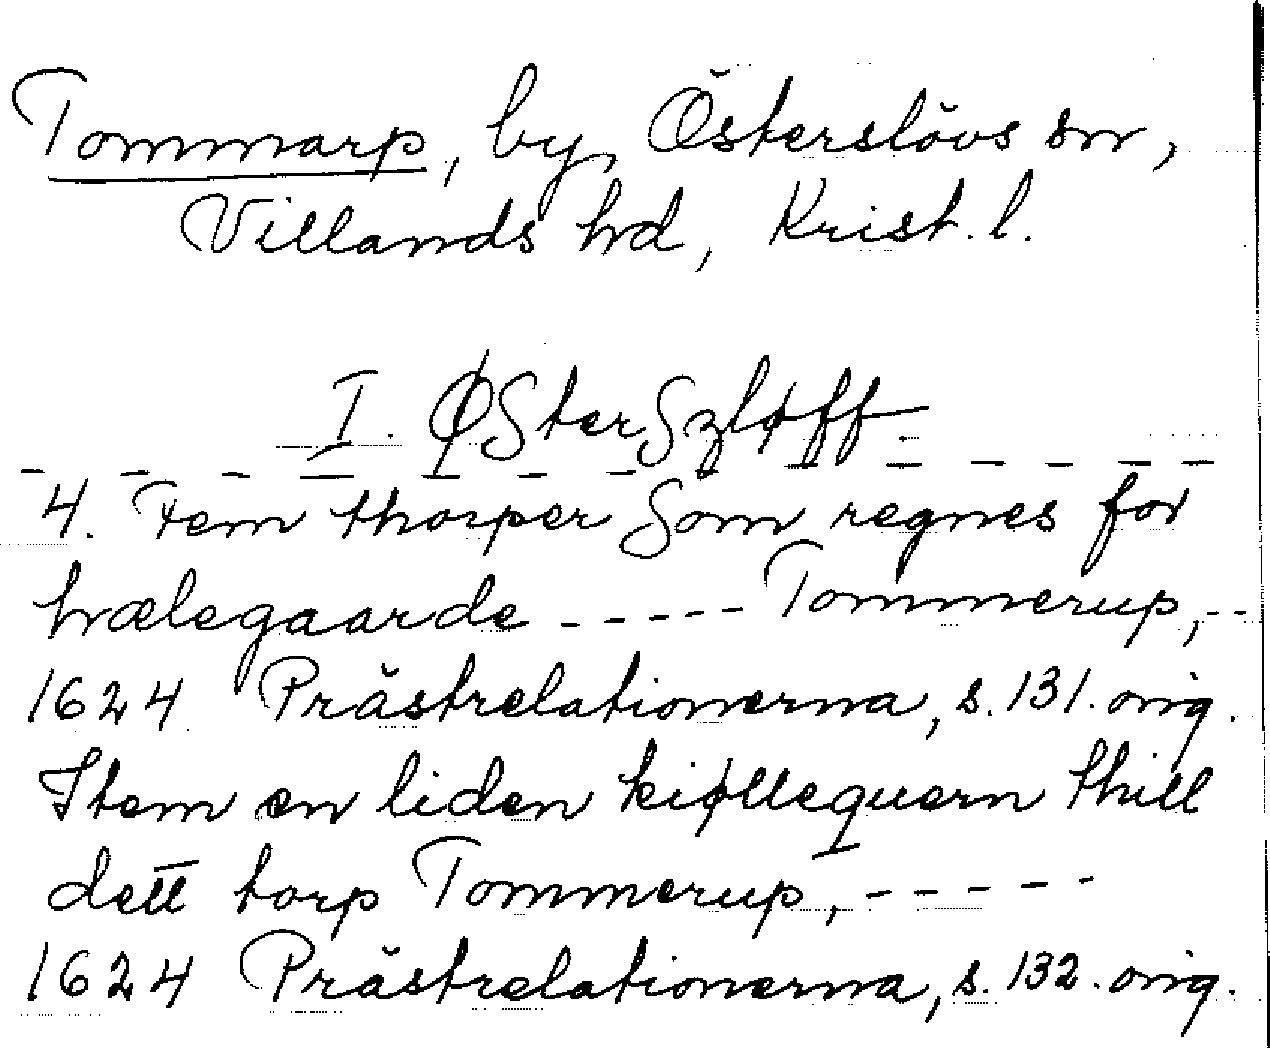 Tommarp, by, Österslövs sn,
Villands hd, Krist. l.
I. ØSterSzløff.
- - - - - - - - - - - - - -
4. Fem thorper Som regnes for
hælegaarde - - - - - Tommerup, - -
1624 Prästrelationerna, s. 131. orig.
Item en liden kiøllequern thill
dett torp Tommerup, - - - - -
1624 Prästrelationerna, s. 132. orig.